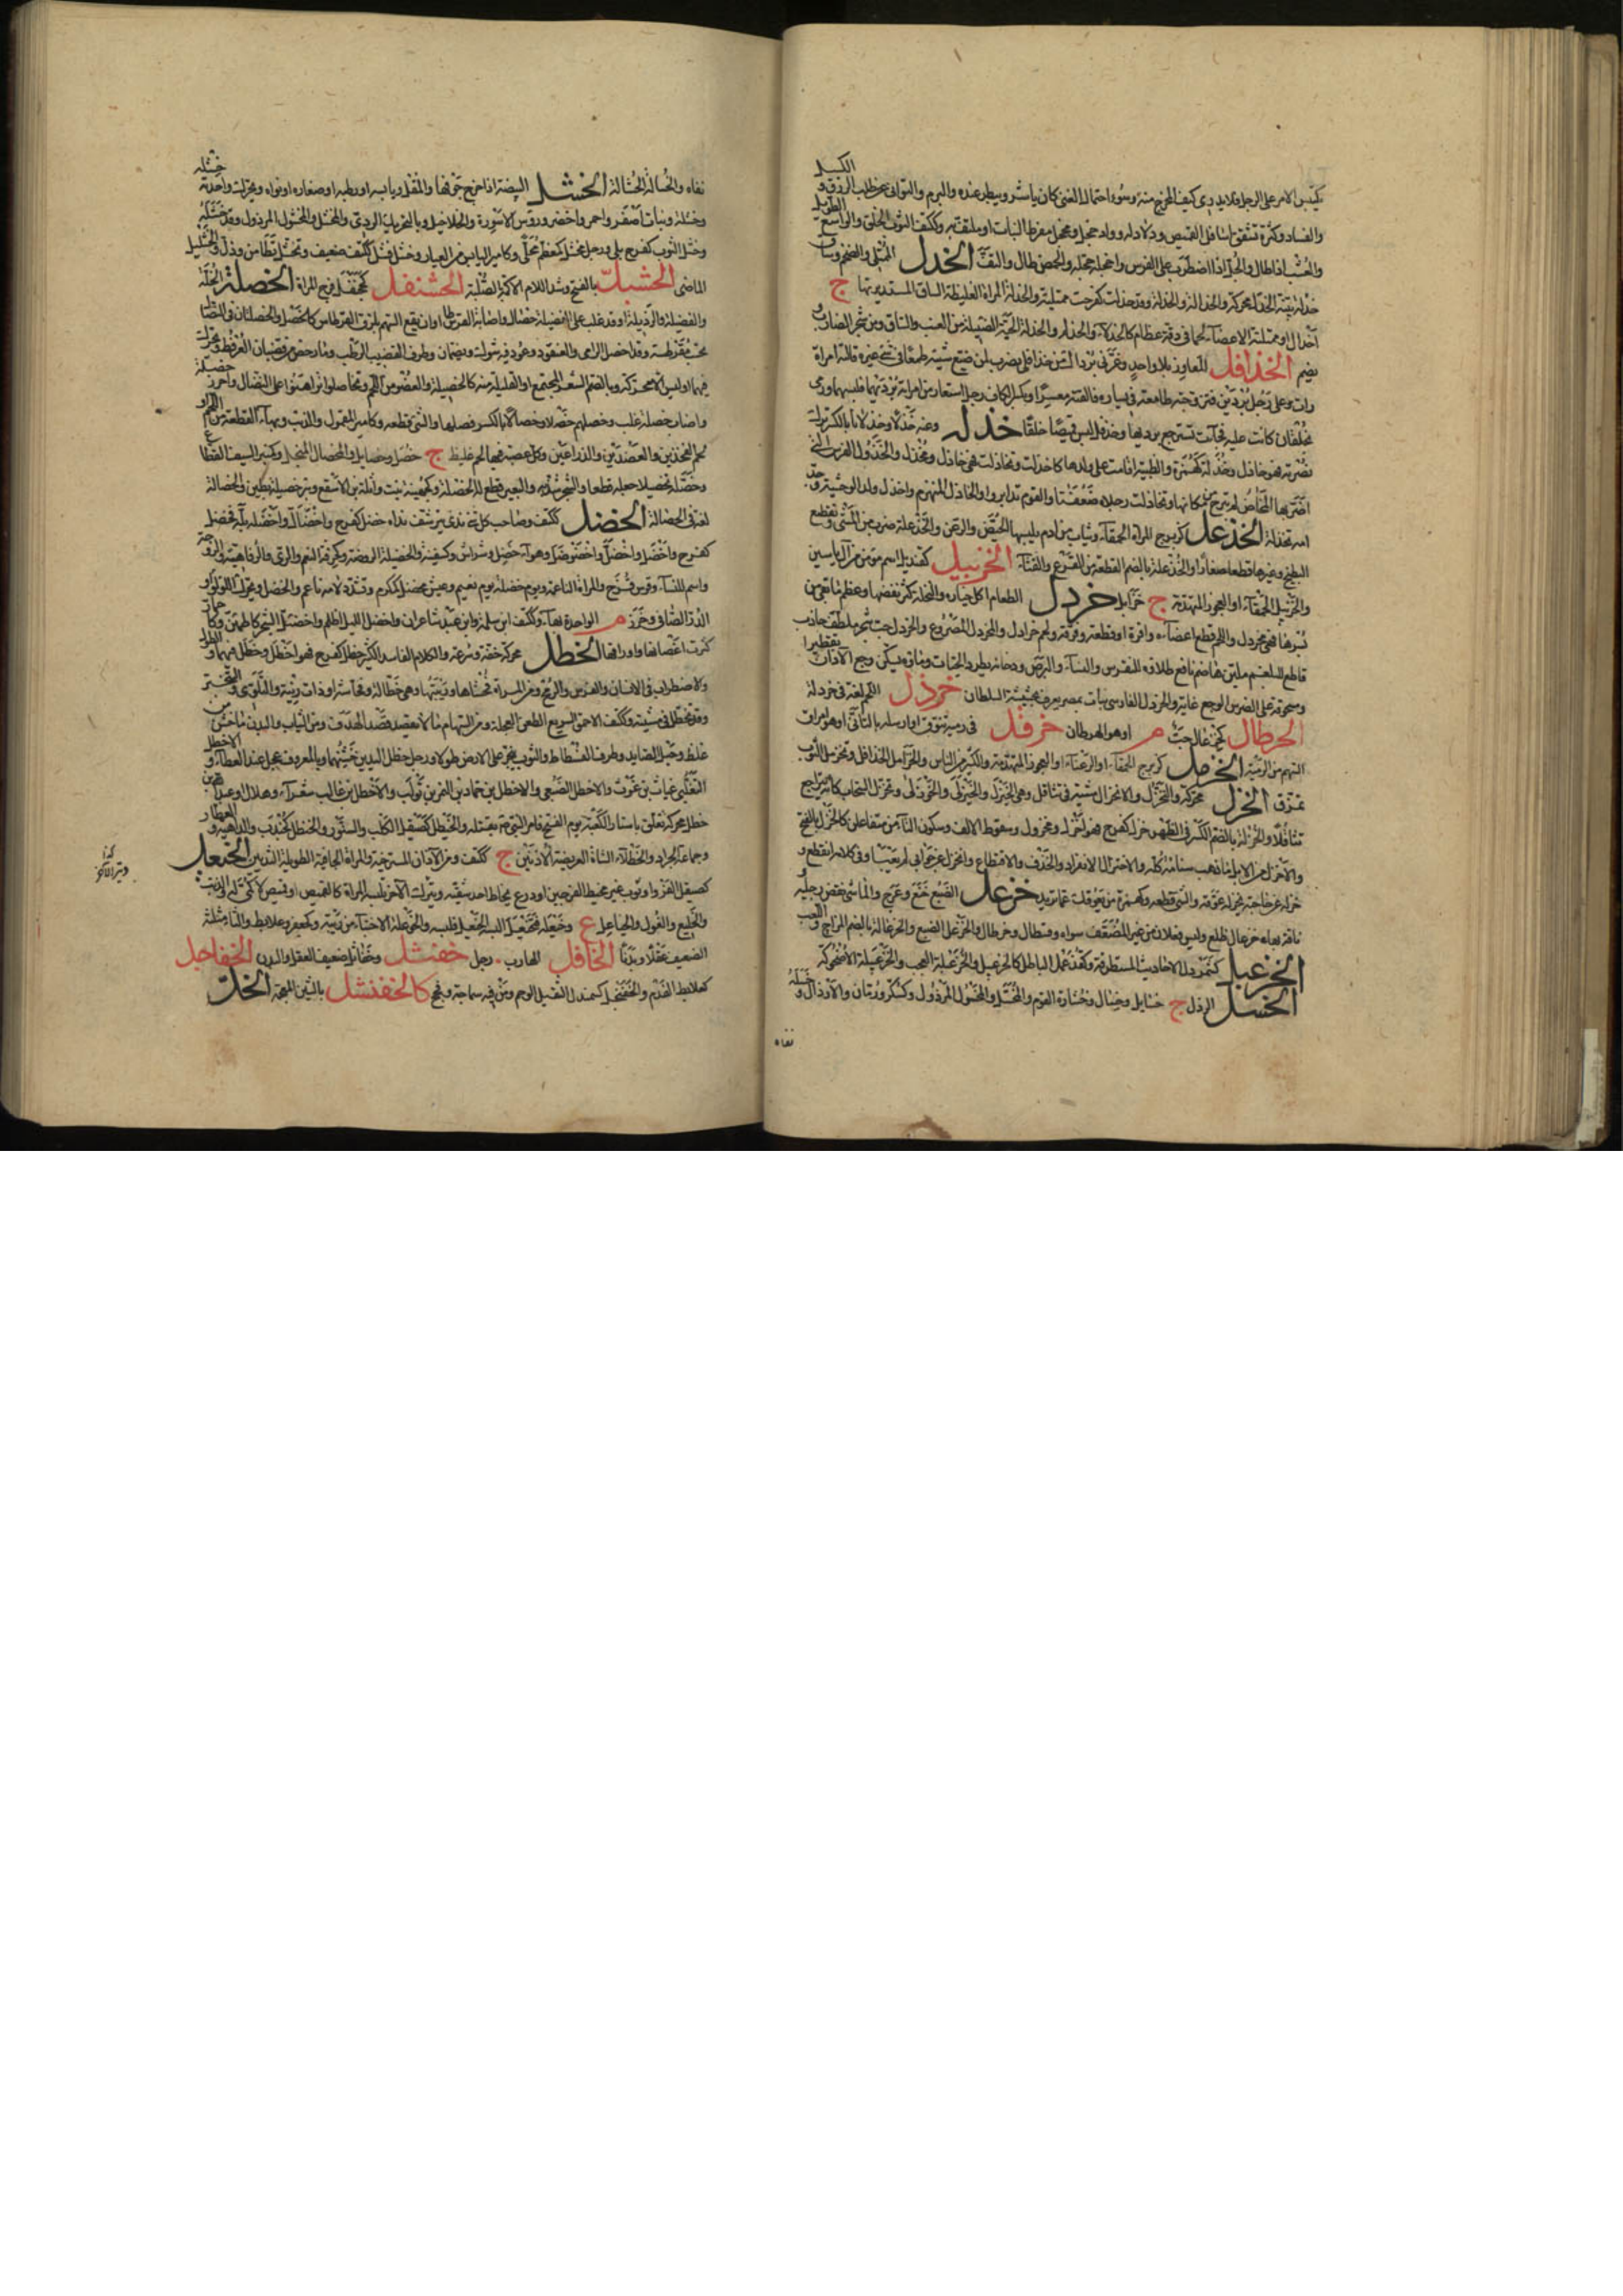 يلتبس الامر على الرجل فلا يدرى كيف المخرج منه وسوء احتمال الغنى كان ياشر ويبطر عنده والبرم والتوانى عن طلب الرزق والكسل
والفساد وكثرة تشقق اسافل القميص وواد خجل ومخجل مفرط النبات او ملتف به وككتف الثوب الخلق والواسع الطويل
والعشب اذا طال والجل اذا اضطرب على الفرس واخجله خجله والحمض طال والتف الخدل الممتلئ والضخم وساق
خدلة بينة الخدل محركة والخدالة والخدولة وقد خدلت كفرحت ممتلئة والخدلة المراة الغليظة الساق المستديرتها ج
اخدال او ممتلئة الاعضاء لحما فى دقة عظام كالخدلاء والخدلم والخدلة الحبة الضئيلة من العنب والساق من شجر الصاب و
يضم الخذافل المعاوز بلا واحد وغرنى برداك من خذافلى يضرب لمن ضيع شيئه طمعا فى شئ غيره قالته امراة
رات على رجل بردين فتزوجته طامعة فى يساره فالفته معسرا او بكسر الكاف رجل استعار من امراة برديها فلبسهما ورمى
بخلقان كانت عليه فجاءت تسترجع برديها وخذفل لبس قميصا خلقا خذله وعنه خذلا وخذلانا بالكسر ترك
نصرته فهو خاذل وخذلة كهمزة والظبية اقامت على ولدها كاخذلت وتخاذلت فهى خاذل ومخذل والخذول الفرس التى
اضربها المخاض لم تبرح مكانها وتخاذلت رجلاه ضعفتا والقوم تدابروا والخاذل المنهزم واخذل ولد الوحشية وجد
امه تخذله الخذعل كزبرج المراة الحمقاء وثياب من ادم يلبسها الحيض والرعن والخذعلة ضرب من المشى وتقطيع
البطيخ وغيرها قطعا صغارا والخذعلة بالضم القطعة من القرع والقثاء الخربيل كقنديل اسم مؤمن من آل ياسين
والخربيل الحمقاء او العجوز المتهدمة ج خرابل خردل الطعام اكل خياره والنخلة كثر نفضها وعظم ما بقى من
بسرها فهى مخردل واللحم قطع اعضاءه وافرة او قطعه وفرقه ولحم خرادل والمخردل المصروع والخردل حب شجر ملطف جاذب
قاطع للبلغم ملين هاضم نافع طلاؤه للنقرس والنساء والبرص ودخانه يطرد الحيات وماؤه يسكن وجع الآذان تقطيرا
ومسحوقه على الضرس الوجع غاية والخردل الفارسى نبات بمصر يعرف بحشيشة السلطان خرذل اللحم لغة فى خردله
الخرطال كخزعال حب م او هو الهرطمان خرفل فى رميه تنوق او ارسله بالتأنى او هو امراق
السهم من الرمية الخرمل كزبرج الحمقاء او الرعناء او العجوز المتهدمة والكثير من الناس والخرامل الخذافل وتخرمل الثوب
تمزق الخزل محركة والتخزل والانخزال مشية فى تثاقل وهى الخيزل والخيزلى والخوزلى وتخزل السحاب كانه يتراجع
تثاقلا والخزلة بالضم الكسرة فى الظهر خزل كفرح فهو اخزل ومخزول وسقوط الالف وسكون التاء من متفاعلن كالخزل بالفتح
والاخزل من الابل ما ذهب سنامه كله والاختزال الانفراد والحذف والاقتطاع وانخزل عن جوابى لم يعبأ به وفى كلامه انقطع و
خزله عن حاجته يخزله عوقه والشئ قطعه وكهمزة من يعوقك عما تريد خزعل الضبع خمع وعرج والماشى نفض رجليه و
ناقة بها خزعال ظلع وليس فعلال من غير المضعف سواه وقسطال وخرطال والخزعل الضبع والخزعالة بالضم المزاح واللعب
الخزعبل كشمردل الاحاديث المستطرفة وكقذعمل الباطل كالخزعبيل والخزعبلة العجب والخزعبيلة الاضحوكة
الخسل الرذل ج خسايل وخسال وخسارة القوم والمخسل والمخسول المرذول وكسكر ورمان والارذال وخسله
نفاه
نفاه والخسالة الحثالة الخشل البيضة اذا اخرج جوفها والمقل او يابسه او رطبه او صغاره او نواه ويحرك واحدته خشلة
وخشلة ونبات اصفر واحمر واخضر ورؤس الاسورة والخلاخيل وبالتحريك الردئ والمخشل والمخشول المرذول وقد خشله
وخشل الثوب كفرح بلى ورجل مخشل كمعظم محلى وكامير اليابس من العيدان وخشل فشل ككتف ضعيف وتخشل تطامن وذل والخشليل
الماضى الخشبل بالفتح وشد اللام الاكمة الصلبة الخشنفل كجحنفل فرج المراة الخصلة الخلة
والفضيلة والرذيلة او قد غلب على الفضيلة ج خصال واصابة القرطاس او ان يقع السهم بلزق القرطاس كالخصل والخصلتان فى النضال
تحسب مقرطسة وقد اخصل الرامى والعنقود وعود فيه شوك ويضمان وطرف القضيب الرطب وما رخص من قضبان العرفط ويحرك
فيهما وليس الا محركة وبالضم الشعر المجتمع او القليلة منه كالخصيلة والعضو من اللحم وتخاصلوا تراهنوا على النضال واحرز خصله
واصاب خصله غلب وخصلهم خصلا وخصالا بالكسر فضلهم والشئ قطعه وكامير المقمول والذنب وبهاء القطعة من اللحم او
لحم الفخذين والعضدين والذراعين وكل عصبة فيها لحم غليظ ج خصل وخصايل والمخصال المنجل وكمنبر السيف القطاع
وخصله تخصيلا جعله قطعا والشجر شذبه والبعير قطع له الخصلة وكجهينة بنت واثلة بن الاسقع وبنو خصيلة بطين والخصالة
لغة فى الحصالة الخضل ككتف وصاحب كل شئ ندى يترشف نداه خضل كفرح واخضال واخضله بله فخضل
كفرح واخضل واخضل واخضوضل وهواء خضل وشواء رشراش وكسفينة والخضيلة الروضة وكحزقة النعم والرى والرفاهية والزوجة
واسم للنساء وقوس قزح والمراة الناعمة ويوم خضلة يوم نعيم وعيش مخضل كمكرم وتشدد لامه ناعم والخضل ويحرك اللؤلؤ او
الدر الصافى وخرز م الواحدة بهاء وككتف ابن سلمة وابن عبيد شاعران واخضل الليل اظلم واخضأل الشجر كاطمأن
كثرت اغصانها واوراقها الخطل محركة خفة وسرعة والكلام الفاسد الكثير خطل كفرح فهو اخطل وخطل فيهما والطول
والاضطراب فى الانسان والفرس والرمح ومن المراة فحشاها وريبتها وهى خطالة فحاشة او ذات ريبة والتلوى والتبختر
وقد تخطل فى مشيته وككتف الاحمق السريع الطعن العجلة ومن السهام ما لا يقصد قصد الهدف ومن الثياب والبدن ما خشن
غلظ وحبل الصايد وطرف الفسطاط والثوب ينجر على الارض طولا ورجل خطل اليدين خشنهما وبالمعروف عجل عند العطاء والاخطل
التغلبى غياث بن غوث والاخطل الضبعى والاخطل بن حماد بن النمر بن تولب والاخطل بن غالب شعراء وهلال او عبد الله بن
خطل محركة تعلق باستار الكعبة يوم الفتح فامر النبى صلعم بقتله والخيطل كصيقل الكلب والسنور والخنطل كجندب والداهية والعطار
وجماعة الجراد والخطلاء الشاة العريضة الاذنين ج ككتف ومن الآذان المسترخية والمراة الجافية الطويلة الثديين الخيعل
كصيقل الفرو او ثوب غير مخيط الفرجين او درع يخاط احد شقيه ويترك الآخر تلبسه المراة كالقميص او قميص لا كمى له والذئب
والخليع والغول والخياعل ع وخيعله فتخيعل البسه الخيعل فلبسه والخوعلة الاختباء من ريبة وكجعفر وعلابط والثاء مثلثة
الضعيف عقلا وبدنا الخافل الهارب رجل خفثل وخفاثل ضعيف العقل والبدن الخفاجل
كعلابط الفدم والخفنجل كسمندل الثقيل الوخم ومن فيه سماجة وفحج كالخفنشل بالشين المعجمة الخل